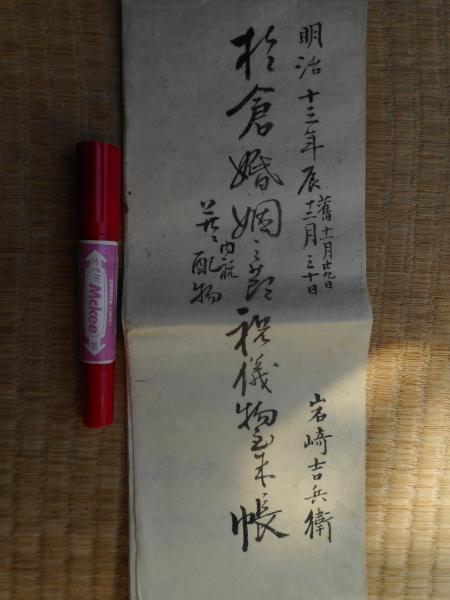 明治十三年辰
舊十一月廿九日
十二月三十日
於倉婚姻之節祝儀物到来帳
并内祝
配物
岩﨑吉兵衛
Mckee